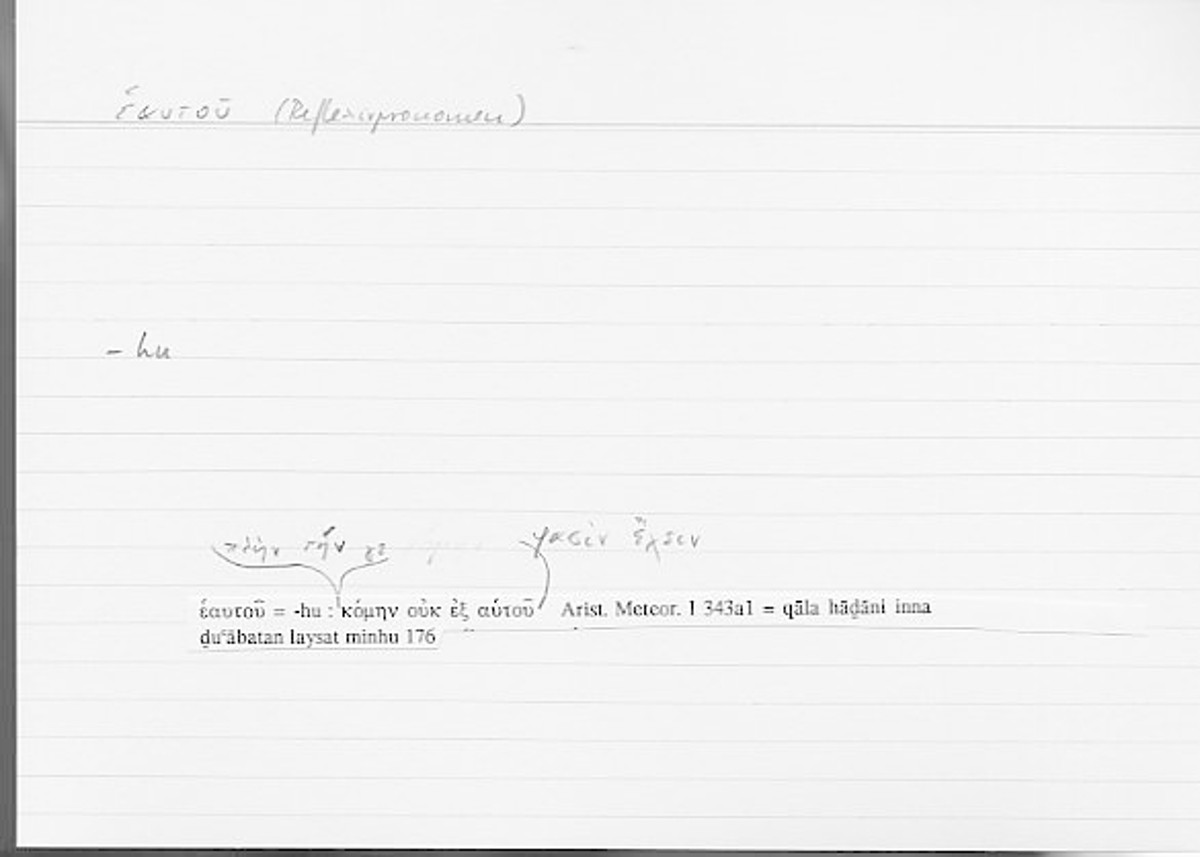 ἑαυτοῦ (Reflexivpronomen)
- hu
πλὴν τήν γε φασὶν ἔχειν
ἑαυτοῦ = -hu : κόμην οὐκ ἐξ αὑτοῦ Arist. Meteor. I 343a1 = qāla hāḏāni inna
ḏuʾābatan laysat minhu 176